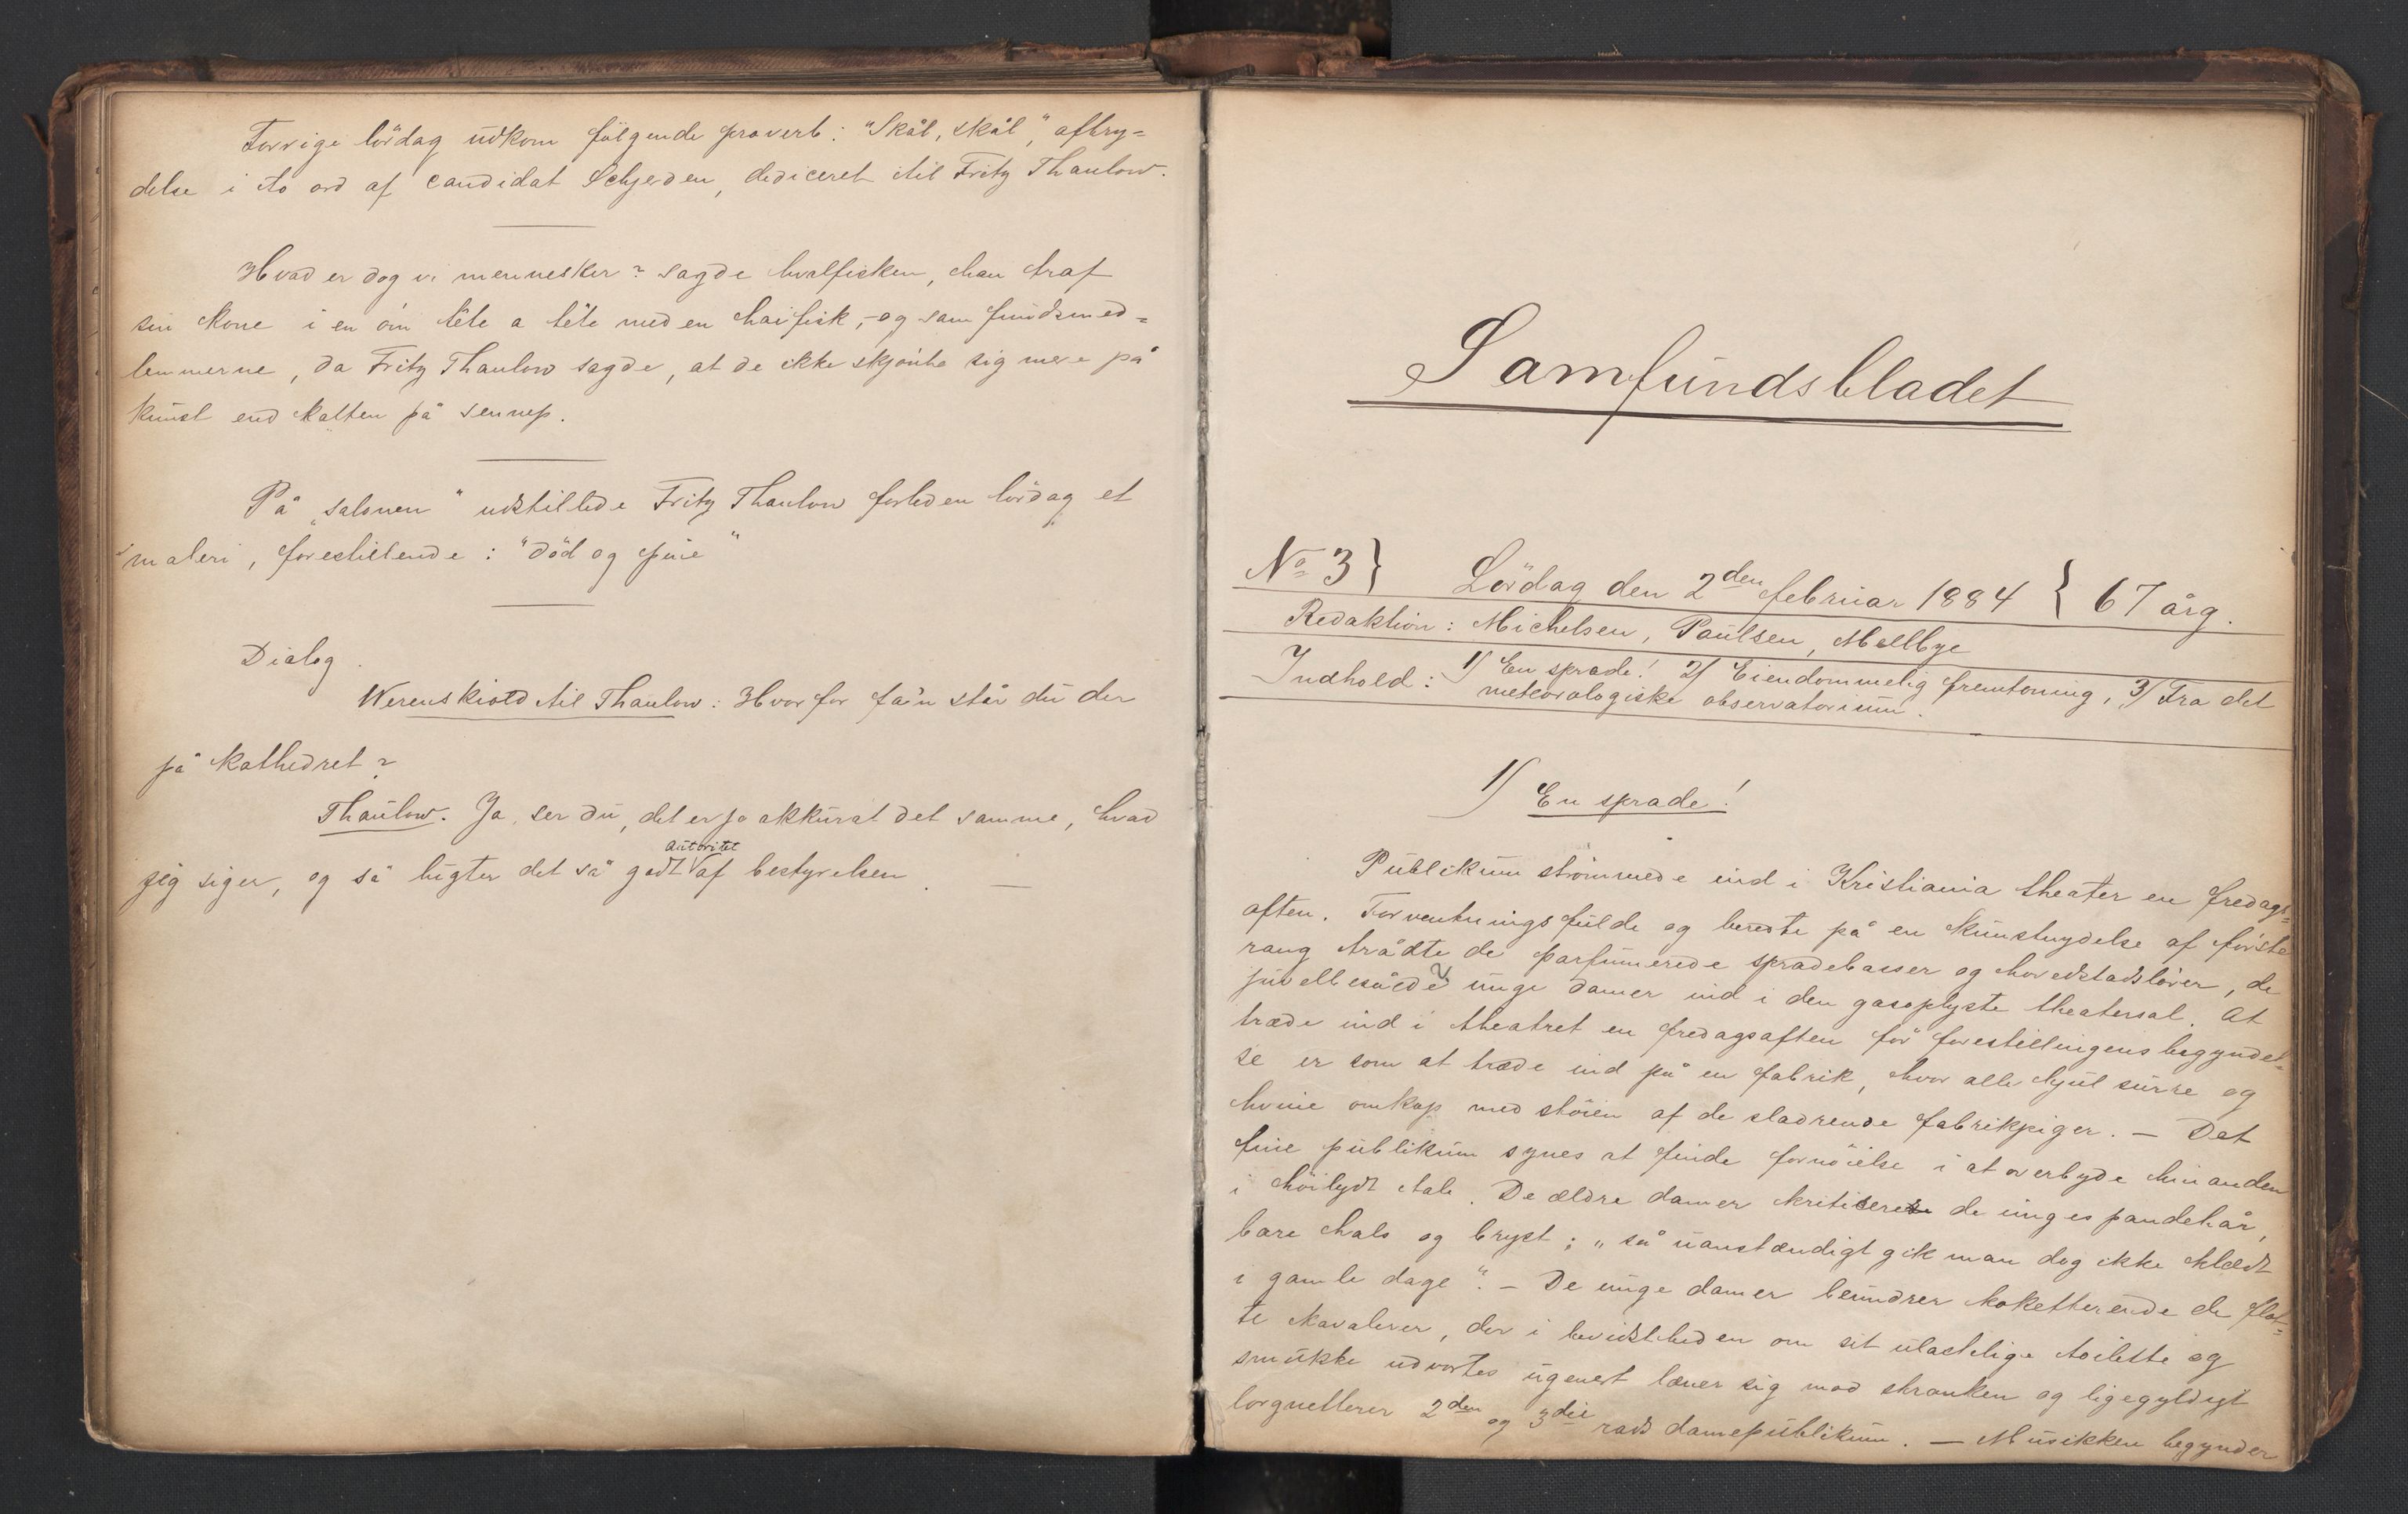 Forrige lördag udkom fölgende proverb: "Skål, skål", aftry-
delse i to ord af candidat Schjerden, dediceret til Fritz Thaulow.
Hvad er dog vi mennesker? sagde hvalfisken, han traf
sin kone i en öm tête a tête med en haifisk, - og samfundsmed-
lemmerne, da Fritz Thaulow sagde, at de ikke skjönte sig mere på
kunst end katten på sennep.
På "salonen" udstillede Fritz Thaulow forleden lördag et
maleri, forestillende: "död og pine"
Dialog.
Werenskiold til Thaulow: Hvorfor fa'n står du der
på kathedret?
Thaulow. Ja, ser du, det er jo akkurat det samme, hvad
jeg siger, og så lugter det så godt autoritet af bestyrelsen. —
Samfundsbladet
No 3} Lördag den 2den februar 1884 { 67 årg.
Redaktion: Michelsen, Paulsen, Mellbye
Indhold: 1) En sprade! 2) Eiendommelig fremtoning, 3) Fra det
meteorologiske observatorium.
1) En sprade!
Publikum strömmede ind i Kristiania theater en fredags-
aften. Forventningsfulde og beredte på en kunstnydelse af förste
rang trådte de parfumerede spradebasser og hovedstadslöver, de
juvelbesåede unge damer ind i den gasoplyste theatersal. At
træde ind i theatret en fredagsaften för forestillingens begyndel-
se er som at træde ind på en fabrik, hvor alle hjul surre og
hvine omkap med stöien af de sladrende fabrikpiger. — Det
fine publikum synes at finde fornöielse i at overbyde hinanden
i höilydt tale. De ældre damer kritisere de unges pandehår,
bare hals og bryst; "så uanstændigt gik man dog ikke klædt
i gamle dage". — De unge damer beundrer koketterende de flot-
te kavalerer, der i bevidstheden om sit ulastelige toilette og
smukke udvortes ugenert læner sig mod skranken og ligegyldigt
lorgnetterer 2den og 3die rads damepublikum. — Musikken begynder